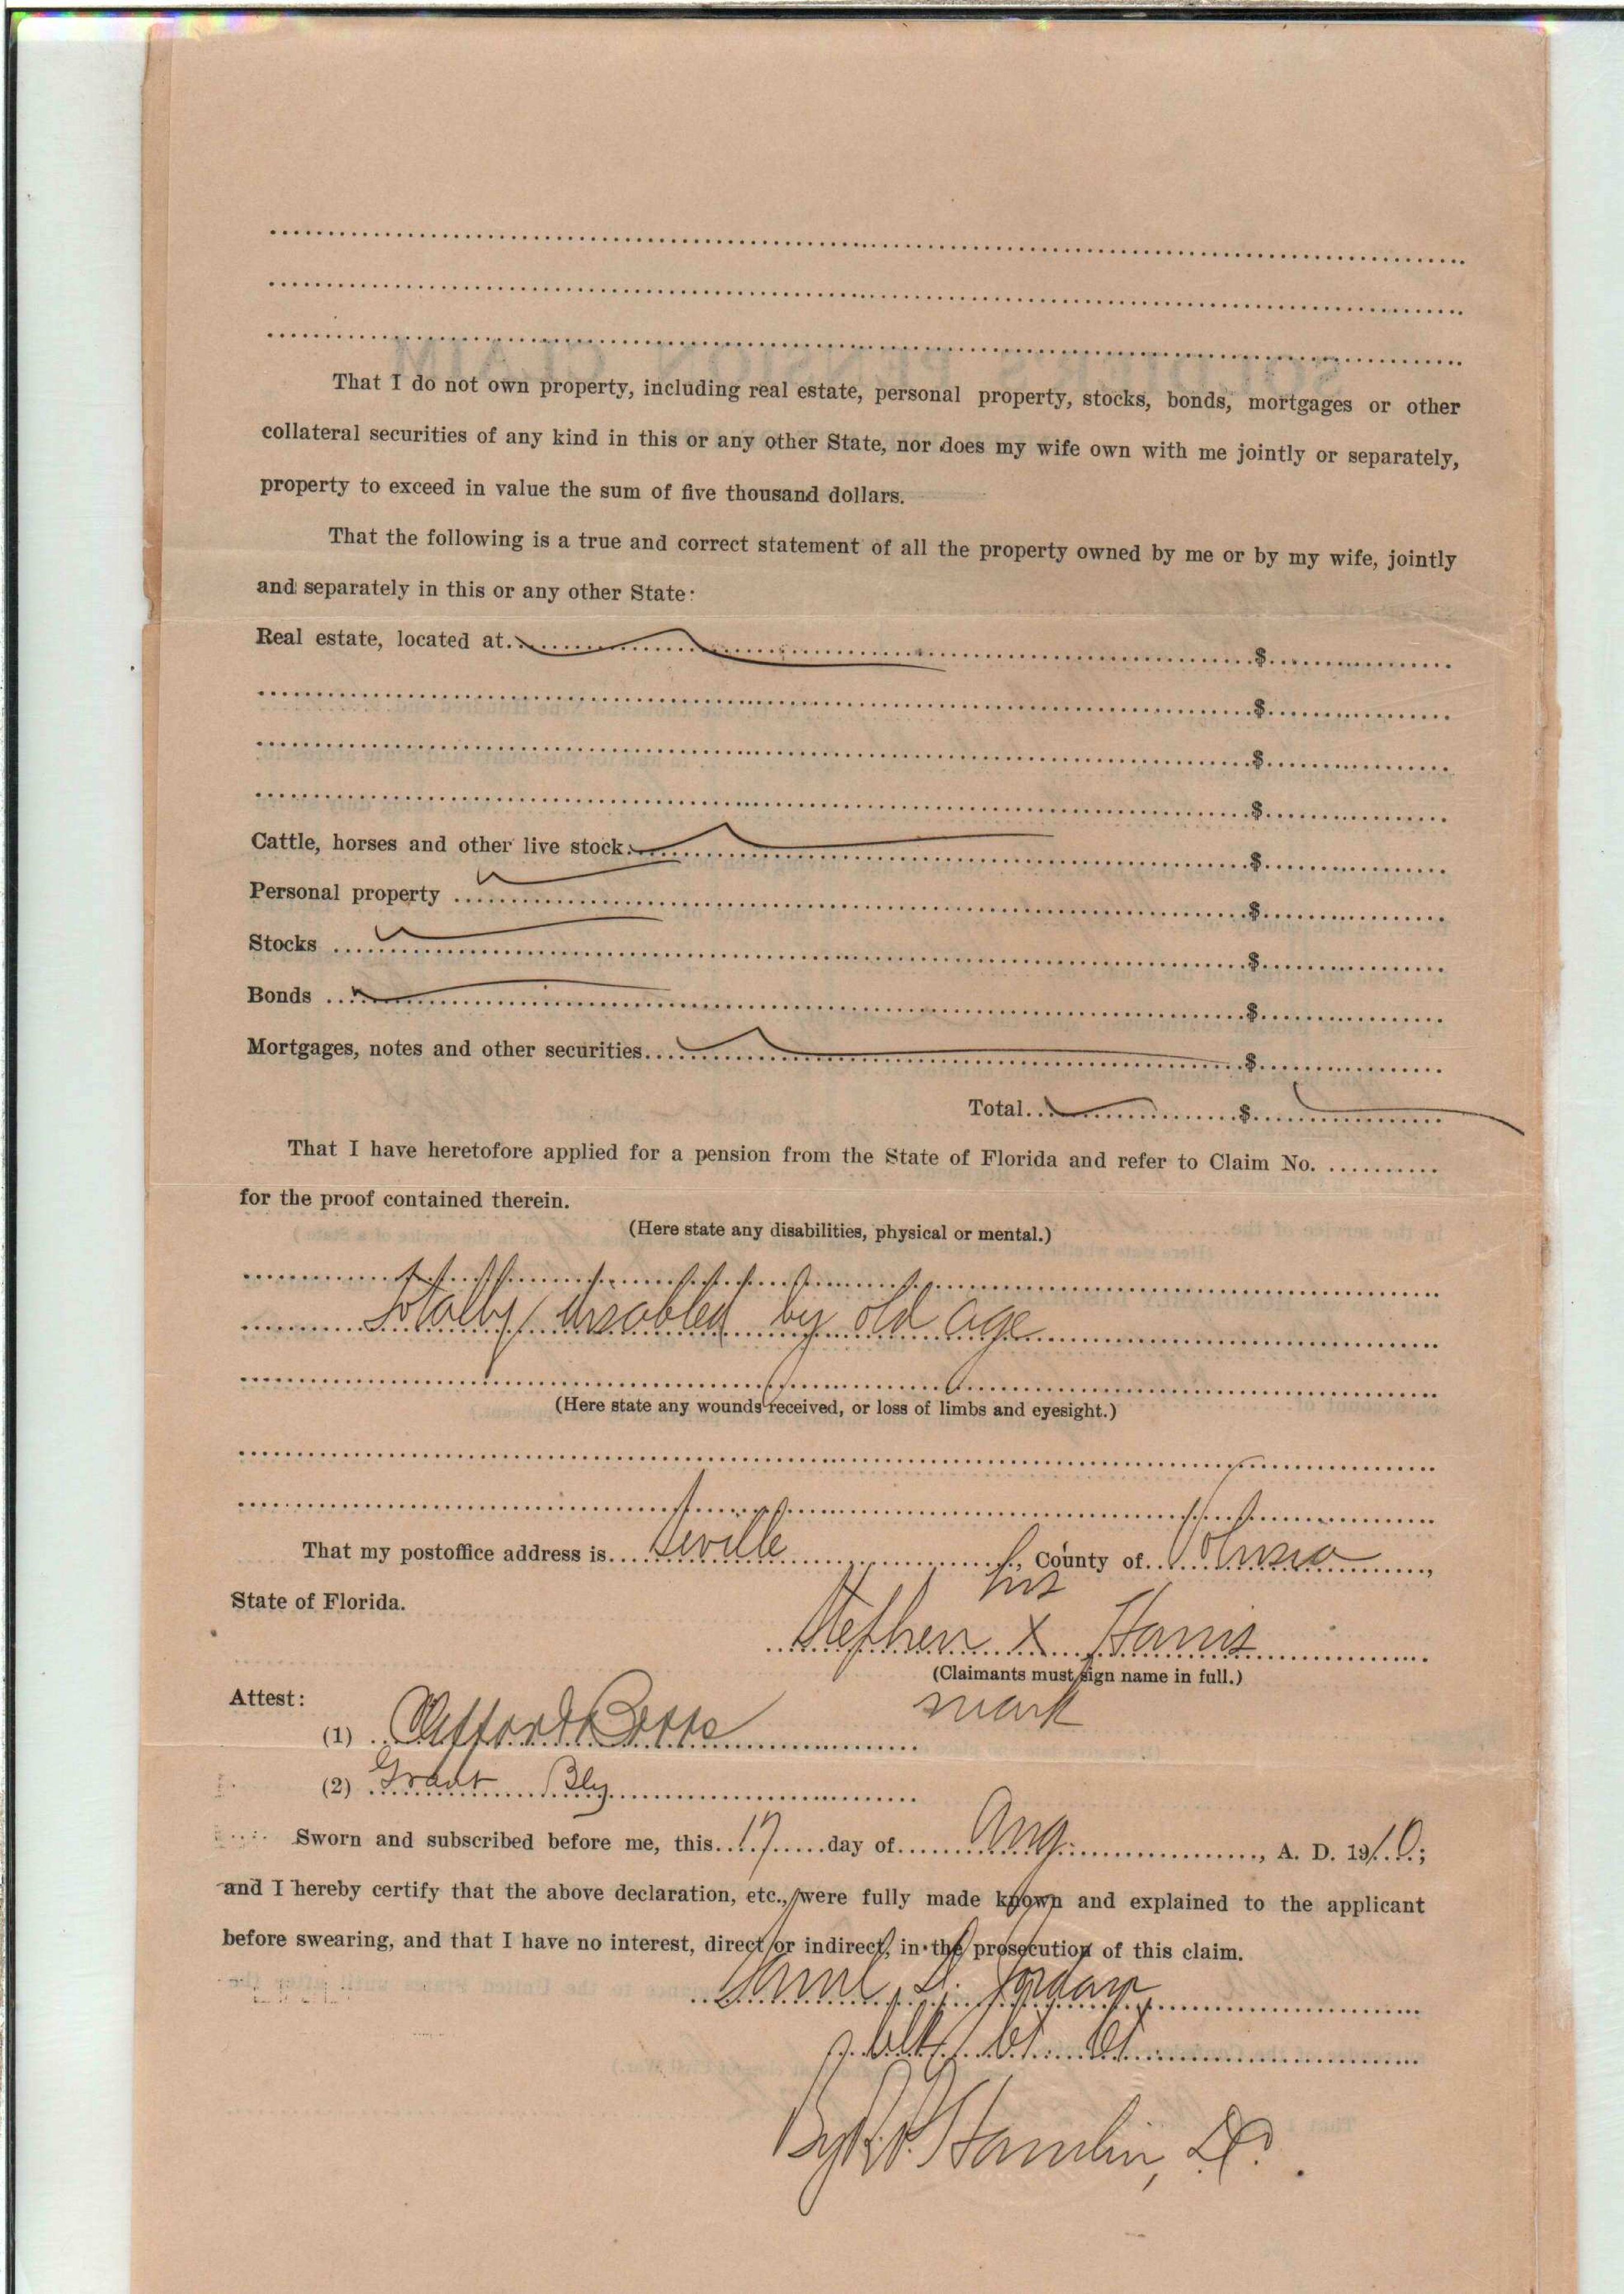 That I do not own property, including real estate, personal property, stocks, bonds, mortgages or other
collateral securities of any kind in this or any other State, nor does my wife own with me jointly or separately,
property to exceed in value the sum of five thousand dollars.
That the following is a true and correct statement of all the property owned by me or by my wife, jointly
and separately in this or any other State:
Real estate, located at. $
$
$
$
Cattle, horses and other live stock. $
Personal property $
Stocks $
Bonds $
Mortgages, notes and other securities. $
Total. $
That I have heretofore applied for a pension from the State of Florida and refer to Claim No.
for the proof contained therein.
(Here state any disabilities, physical or mental.)
totally disabled by old age
(Here state any wounds received, or loss of limbs and eyesight.)
That my postoffice address is Seville, County of Volusia,
State of Florida.
his
Stephen X Harris
(Claimants must sign name in full.)
mark
Attest:
(1) Clifford Botts
(2) Grant Bly
Sworn and subscribed before me, this 17 day of Aug., A. D. 1910;
and I hereby certify that the above declaration, etc., were fully made known and explained to the applicant
before swearing, and that I have no interest, direct or indirect, in the prosecution of this claim.
Saml D. Jordan
Clk Ct. Ct.
Hamlin, D.C.